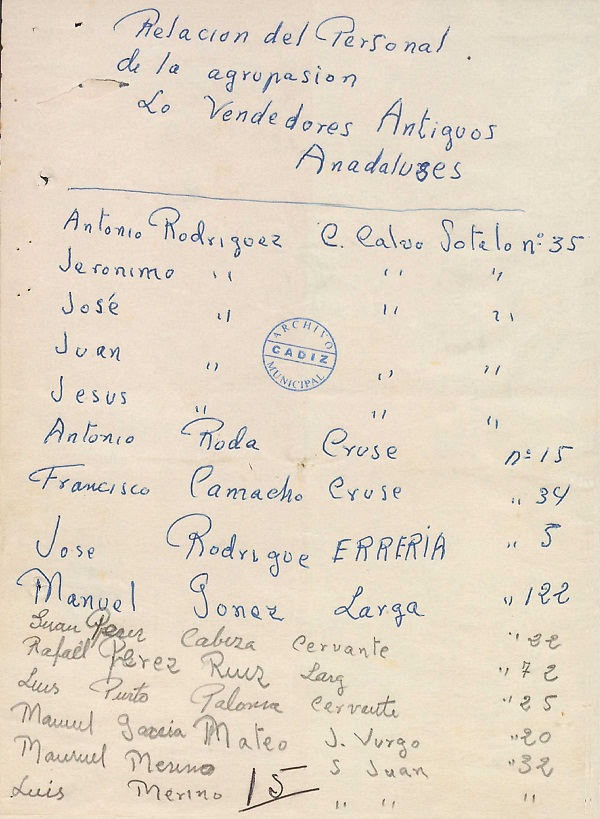 Relacion del Personal.
de la agrupasion
Lo Vendedores Antiguos
Anadaluses
Antonio Rodriguez C. Calvo Sotelo nº 35
Jeronimo " " "
José " " "
ARCHIVO
CADIZ
MUNICIPAL
Juan " " "
Jesus " " "
Antonio Roda Cruse nº 15
Francisco Camacho Cruse " 34
Jose Rodrigue ERRERIA " 5
Manuel Gonez Larga " 122
Juan Perez Cabeza Cervante " 22
Rafaél Pérez Ruiz Larg " 72
Luis Paloma Cervante " 25
Manuel Garcia Mateo J. " 20
Manuel Merino S Juan " 32
Luis Merino 15 " " "